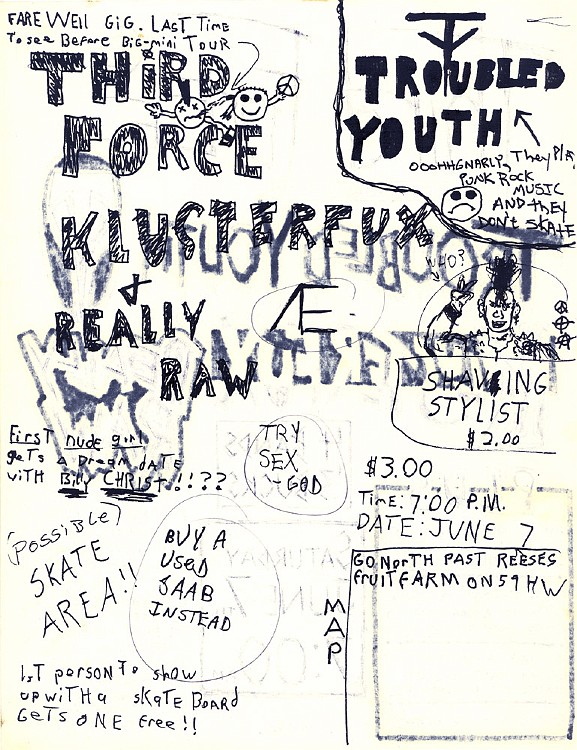 FARE WELL GIG. LAST TIME
To see Before BiG-mini TOUR
THIRD
FORCE
TROUBLED
YOUTH
OOOHHGNARLY, They PLAY
PUNK ROCK
MUSIC
AND THEY
DON'T SKATE
KLUSTERFUX
&
REALLY
RAW
Æ.
WHO?
SHAVING
STYLIST
$2.00
First nude girl
geTs a Dream DATE
wiTH Billy CHRIST!!!??
TRY
SEX
+ GOD
$3.00
Time: 7:00 P.M.
DATE: JUNE 7
(POSSIBLE)
SKATE
AREA!!
BUY A
USED
SAAB
INSTEAD
GO NorTH PAST REESES
FruiT FARM ON 59 HW
MAP
1ST person To show
up wiTH a skaTe BoarD
GeTs ONE Free!!